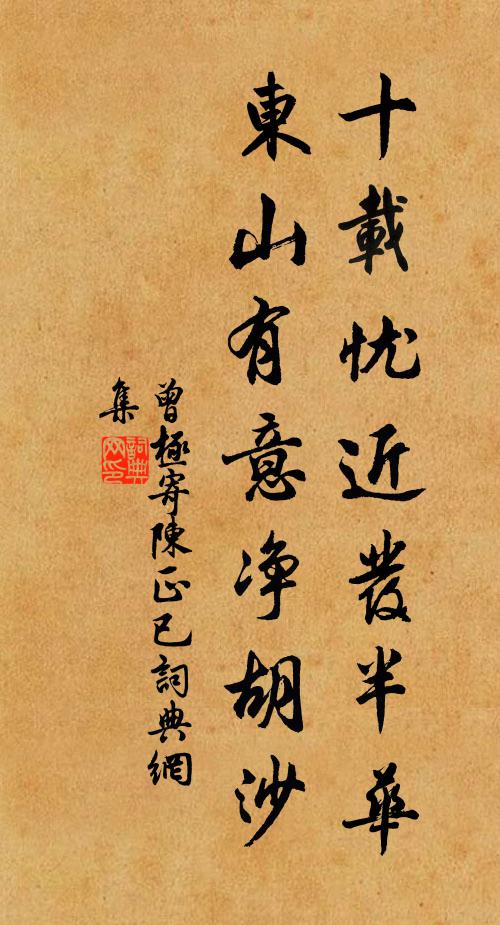 十載忧近發半華
東山有意净胡沙
曾極寄陳正已詞典網
集
詞典网印